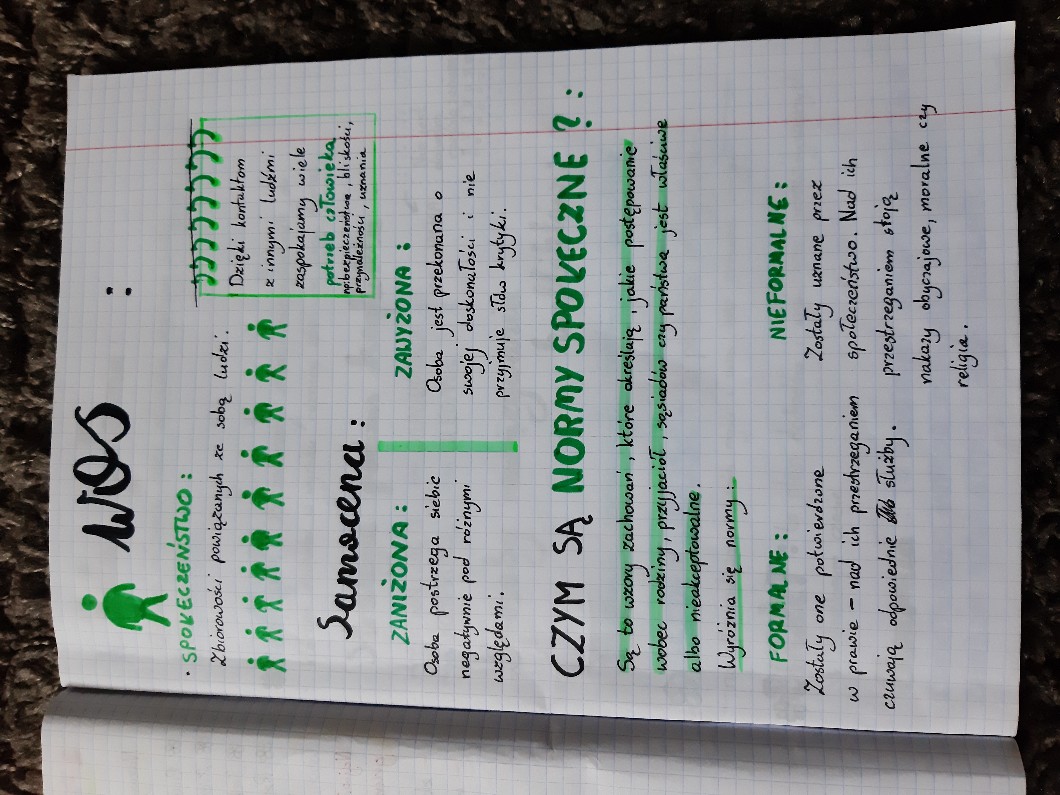 WOS :
• SPOŁECZEŃSTWO :
Zbiorowości powiązanych ze sobą ludzi.
Dzięki kontaktom
z innymi ludźmi
zaspokajamy wiele
potrzeb człowieka
np: bezpieczeństwa, bliskości,
przynależności, uznania
Samocena :
ZANIŻONA :
Osoba postrzega siebie
negatywnie pod różnymi
względami.
ZAWYŻONA :
Osoba jest przekonana o
swojej doskonałości i nie
przyjmuje słów krytyki.
CZYM SĄ NORMY SPOŁECZNE ? :
Są to wzory zachowań, które określają, jakie postępowanie
wobec rodziny, przyjaciół, sąsiadów czy państwa jest właściwe
albo nieakceptowalne.
Wyróżnia się normy :
FORMALNE :
Zostały one potwierdzone
w prawie – nad ich przestrzeganiem
czuwają odpowiednie służby.
NIEFORMALNE :
Zostały uznane przez
społeczeństwo. Nad ich
przestrzeganiem stoją
nakazy obyczajowe, moralne czy
religia.